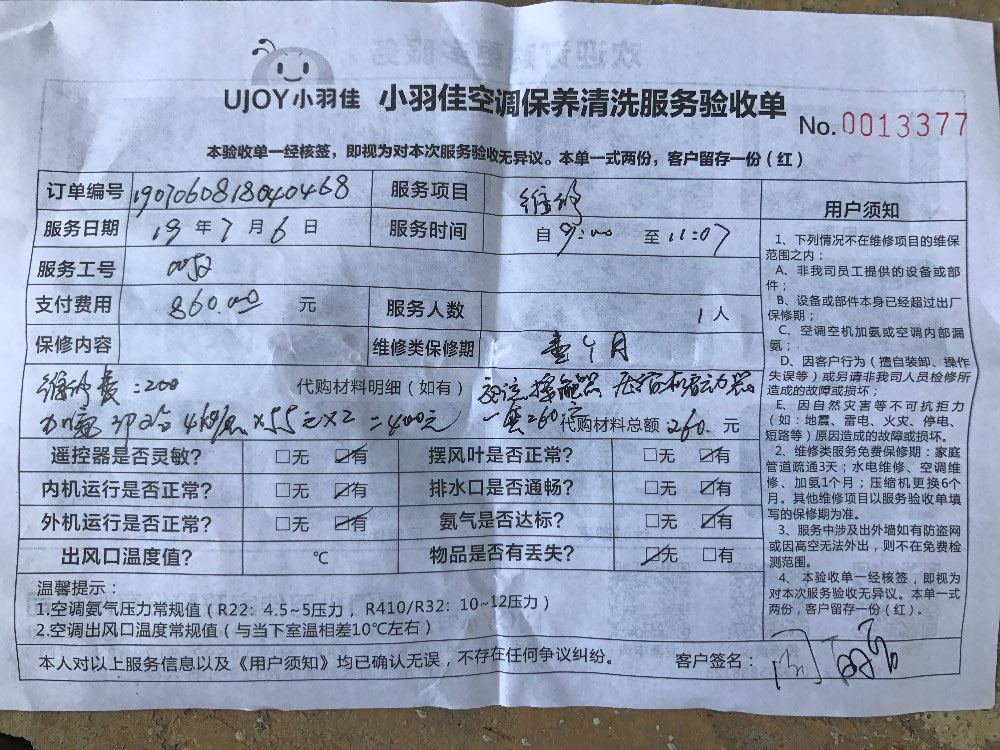 UJOY小羽佳 小羽佳空调保养清洗服务验收单
No. 0013377
本验收单一经核签，即视为对本次服务验收无异议。本单一式两份，客户留存一份（红）
订单编号 1907060818040468 服务项目 维修
服务日期 19 年 7 月 6 日 服务时间 自 9:00 至 11:07
服务工号 0052
支付费用 860.00 元 服务人数 1 人
保修内容 维修类保修期 壹个月
维修费：200 代购材料明细（如有） 交流接触器 压缩机启动器
一套260元 代购材料总额 260. 元
遥控器是否灵敏？ □无 ☑有 摆风叶是否正常？ □无 ☑有
内机运行是否正常？ □无 ☑有 排水口是否通畅？ □无 ☑有
外机运行是否正常？ □无 ☑有 氨气是否达标？ □无 ☑有
出风口温度值？ ℃ 物品是否有丢失？ ☑无 □有
温馨提示：
1.空调氨气压力常规值（R22：4.5~5压力， R410/R32：10~12压力）
2.空调出风口温度常规值（与当下室温相差10℃左右）
本人对以上服务信息以及《用户须知》均已确认无误，不存在任何争议纠纷。 客户签名：
用户须知
1、下列情况不在维修项目的维保
范围之内：
A、非我司员工提供的设备或部
件；
B、设备或部件本身已经超过出厂
保修期；
C、空调空机加氨或空调内部漏
氨；
D、因客户行为（擅自装卸、操作
失误等）或另请非我司人员检修所
造成的故障或损坏；
E、因自然灾害等不可抗拒力
（如：地震、雷电、火灾、停电、
短路等）原因造成的故障或损坏。
2、维修类服务免费保修期：家庭
管道疏通3天；水电维修、空调维
修、加氨1个月；压缩机更换6个
月。其他维修项目以服务验收单填
写的保修期为准。
3、服务中涉及出外墙如有防盗网
或因高空无法外出，则不在免费检
测范围。
4、本验收单一经核签，即视为
对本次服务验收无异议。本单一式
两份，客户留存一份（红）。